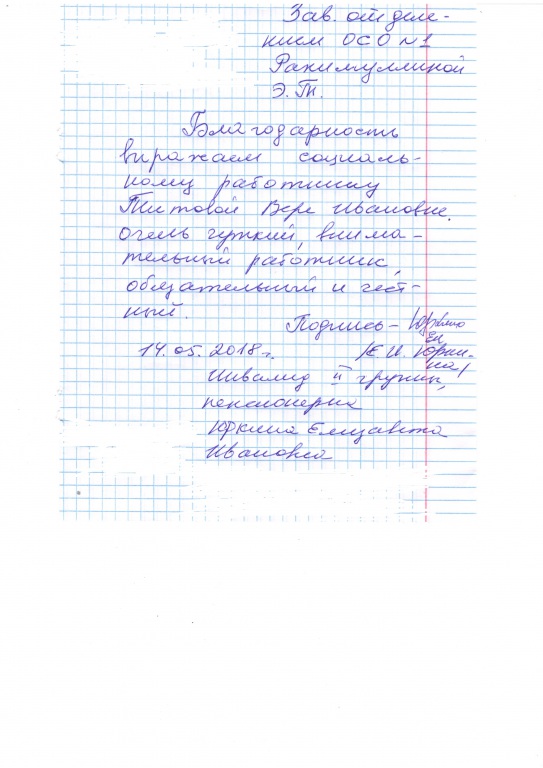 Зав. отделе-
нием ОСО №1
Рахимуллиной
Э.Т.
Благодарность
выражаем социаль-
ному работнику
Титовой Вере Ивановне.
очень чуткий, внима-
тельный работник,
обязательный и чест-
ный.
Подпись –
14.05.2018 г.
/Е.И.
Инвалид II группы,
пенсионерка
Юркина Елизавета
Ивановна